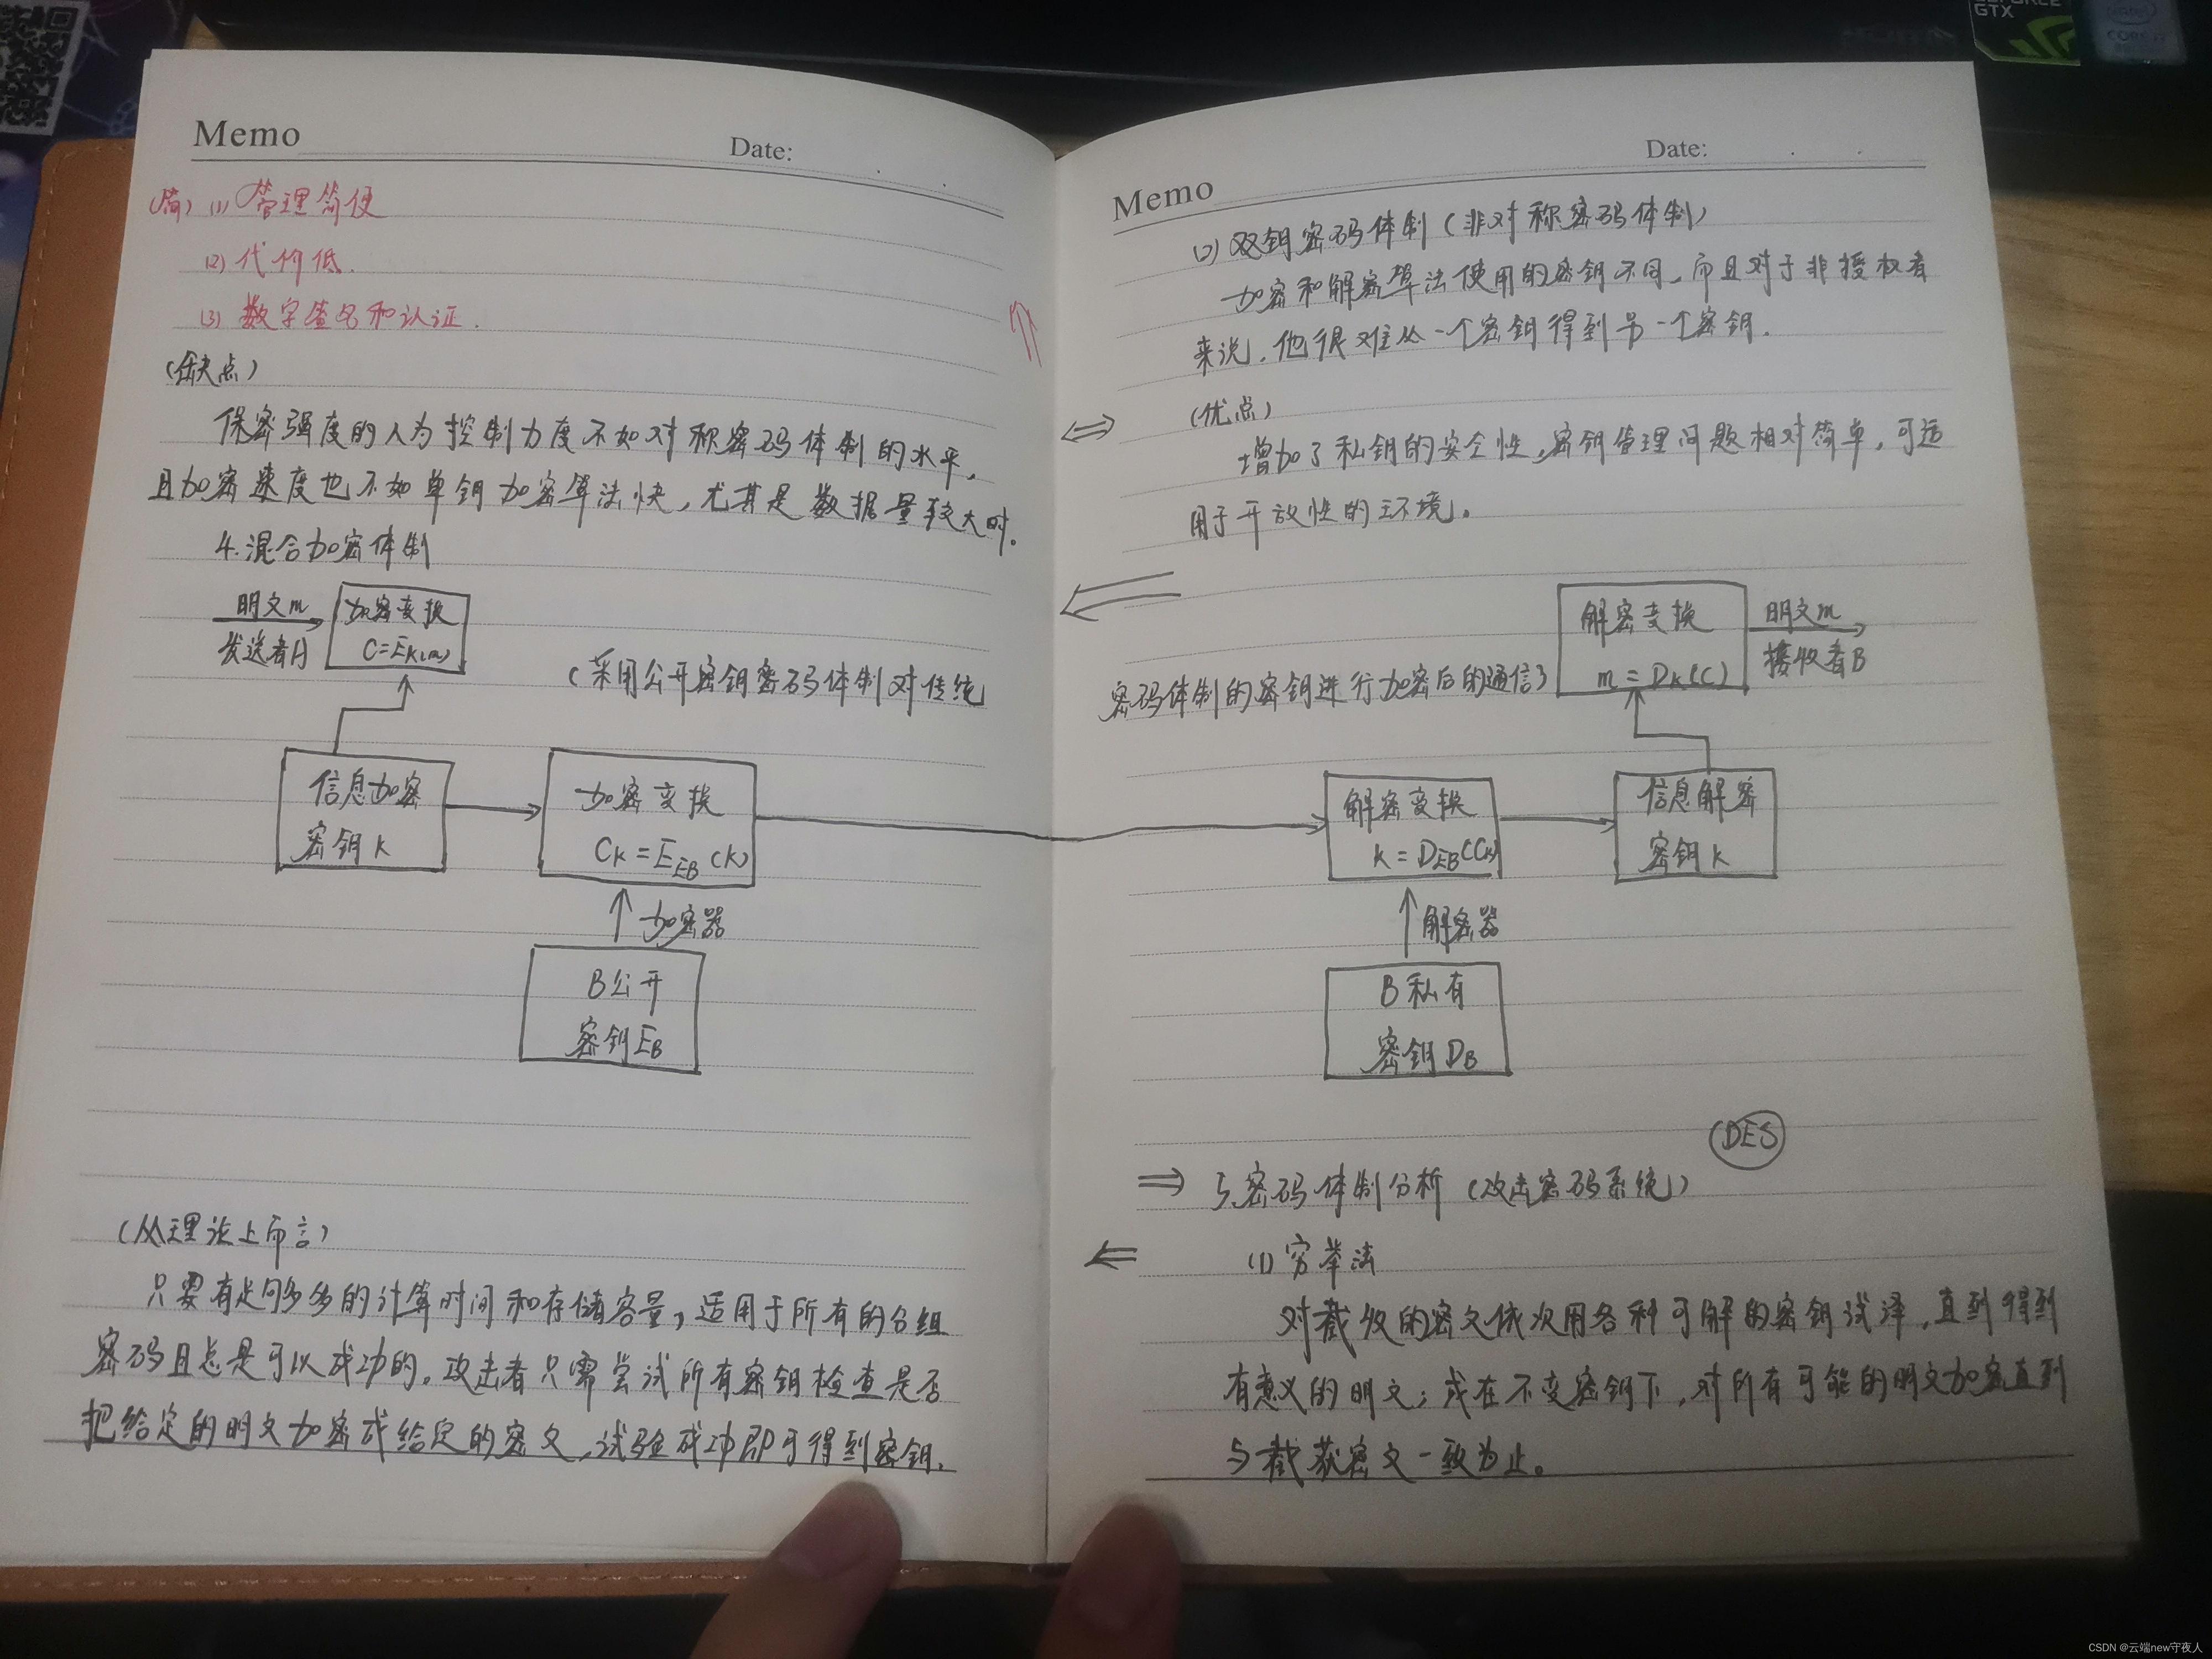 GEFORCE
GTX
intel
CORE i7
Memo
Date:
(简) (1) 管理简便
(2) 代价低.
(3) 数字签名和认证.
(缺点)
保密强度的人为控制力度不如对称密码体制的水平,
且加密速度也不如单钥加密算法快,尤其是数据量较大时。
4.混合加密体制
明文m
发送者A
加密变换
C=EK(m)
(采用公开密钥密码体制对传统
信息加密
密钥K
加密变换
CK=EEB(K)
加密器
B公开
密钥EB
(从理论上而言)
只要有足够多的计算时间和存储容量,适用于所有的分组
密码且总是可以成功的。攻击者只需尝试所有密钥检查是否
把给定的明文加密成给定的密文,试验成功即可得到密钥.
Memo
Date:
(2) 双钥密码体制(非对称密码体制)
加密和解密算法使用的密钥不同,而且对于非授权者
来说,他很难从一个密钥得到另一个密钥.
(优点)
增加了私钥的安全性,密钥管理问题相对简单,可适
用于开放性的环境。
密码体制的密钥进行加密后的通信)
解密变换
m=DK(C)
明文m
接收者B
解密变换
K=DEB(CK)
信息解密
密钥K
解密器
B私有
密钥DB
(DES)
5.密码体制分析(攻击密码系统)
(1) 穷举法
对截收的密文依次用各种可解的密钥试译,直到得到
有意义的明文;或在不变密钥下,对所有可能的明文加密直到
与截获密文一致为止。
CSDN @云端new守夜人